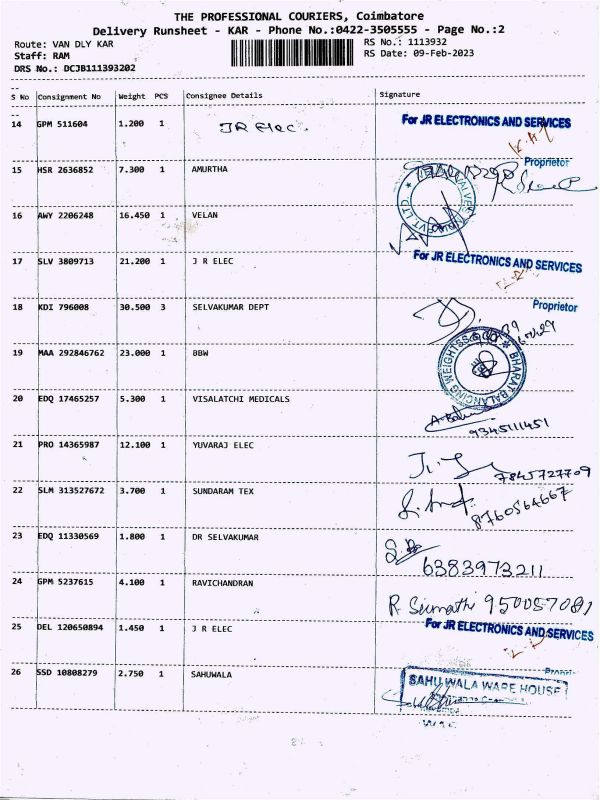 THE PROFESSIONAL COURIERS, Coimbatore
Delivery Runsheet - KAR - Phone No.:0422-3505555 - Page No.:2
Route: VAN DLY KAR RS No.: 1113932
Staff: RAM RS Date: 09-Feb-2023
DRS No.: DCJB111393202
--
S No Consignment No Weight PCS Consignee Details Signature
--
14 GPM 511604 1.200 1 JR Elec. For JR ELECTRONICS AND SERVICES
Proprietor
15 HSR 2636852 7.300 1 AMURTHA
16 AWY 2206248 16.450 1 VELAN
17 SLV 3809713 21.200 1 J R ELEC For JR ELECTRONICS AND SERVICES
Proprietor
18 KDI 796008 30.500 3 SELVAKUMAR DEPT
19 MAA 292846762 23.000 1 BBW BHARAT BALANCING WEIGHTSS & CO
20 EDQ 17465257 5.300 1 VISALATCHI MEDICALS
9345111451
21 PRO 14365987 12.100 1 YUVARAJ ELEC
7845727709
22 SLM 313527672 3.700 1 SUNDARAM TEX
8760564667
23 EDQ 11330569 1.800 1 DR SELVAKUMAR
6383973211
24 GPM 5237615 4.100 1 RAVICHANDRAN R Sumathi 950057081
25 DEL 120650894 1.450 1 J R ELEC For JR ELECTRONICS AND SERVICES
26 SSD 10808279 2.750 1 SAHUWALA SAHUWALA WARE HOUSE